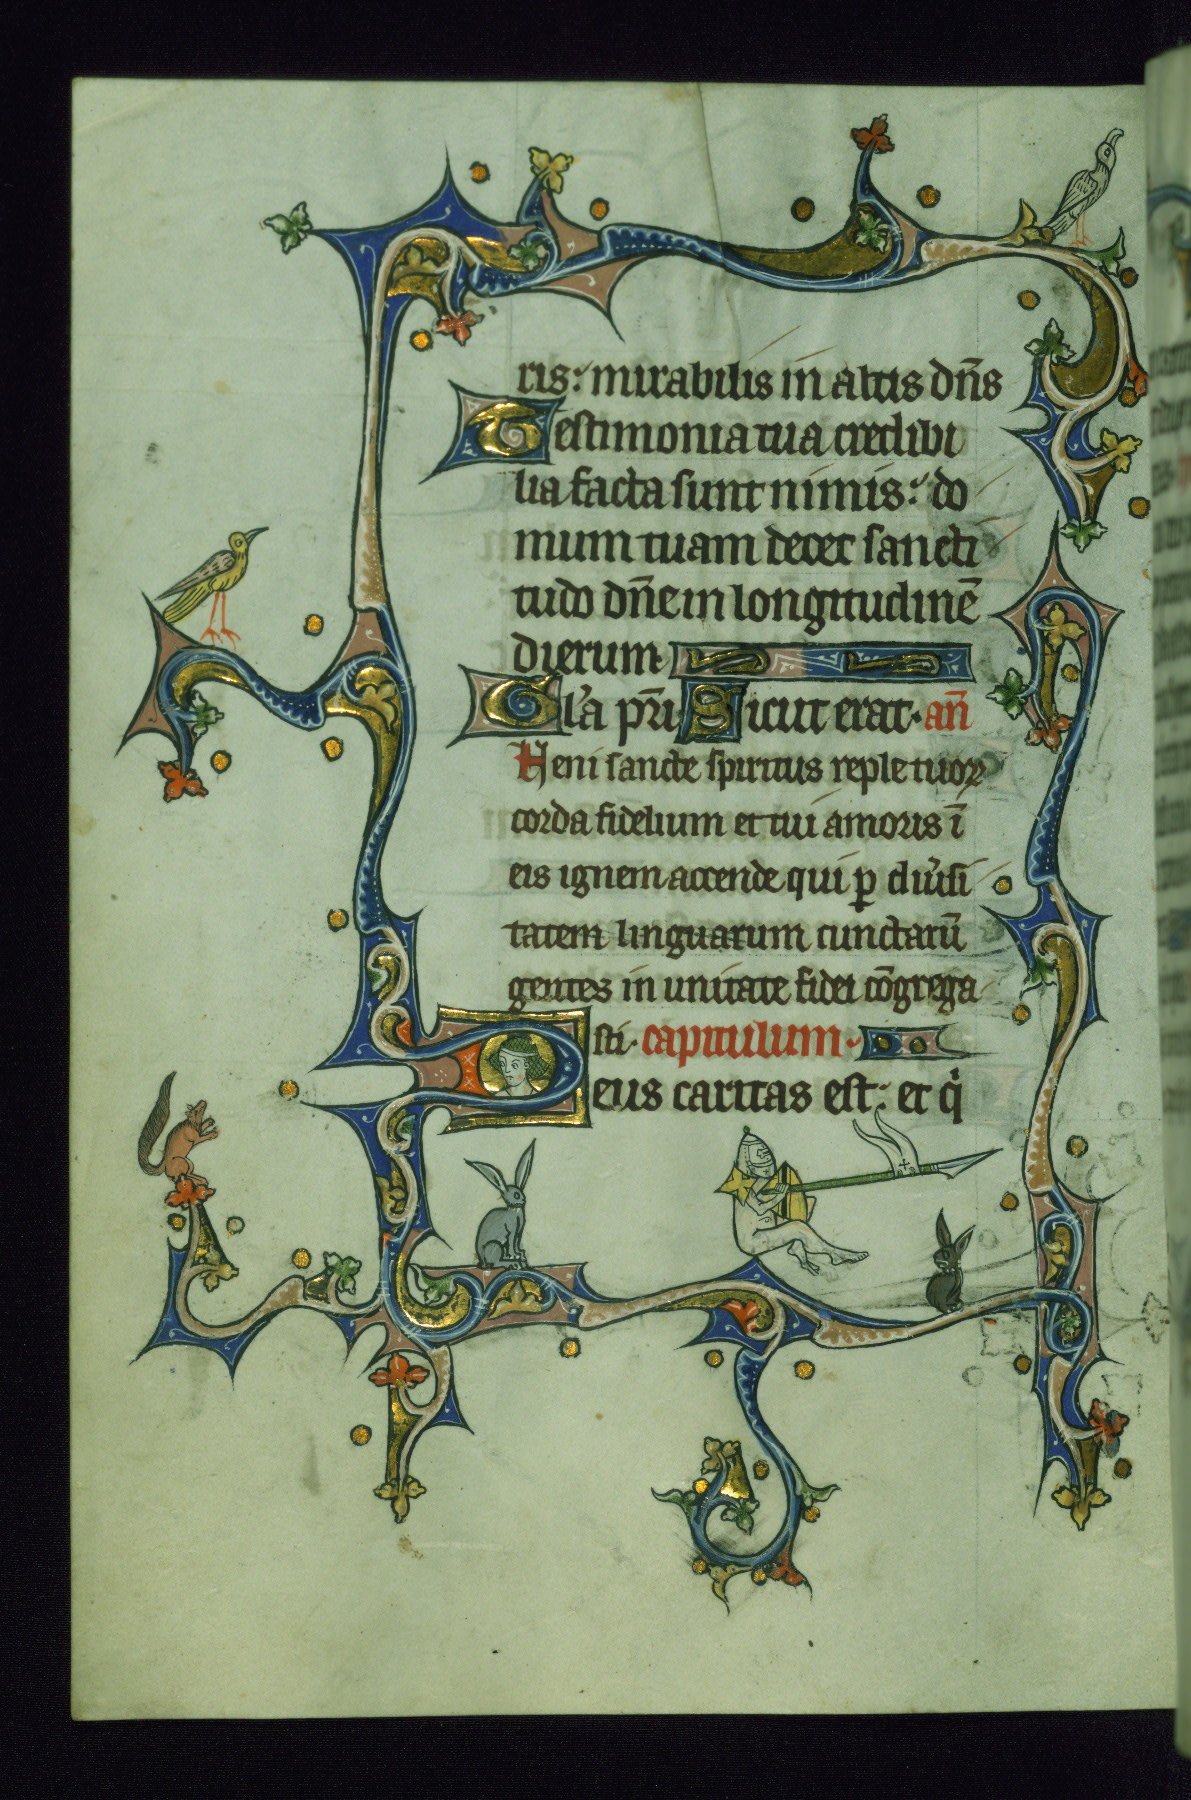 ris: mirabilis in altis dn̄s
Testimonia tua credibi
lia facta sunt nimis: do
mum tuam decet sancti
tudo dn̄e in longitudinē
dierum
Gl'a pr̄i Sicut erat. an̄
Veni sancte spiritus reple tuoꝝ
corda fidelium et tui amoris ī
eis ignem accende qui ꝑ diu'si
tatem linguarum cunctarū
gentes in unitate fidei cōgrega
sti. capitulum
Deus caritas est: et qͥ